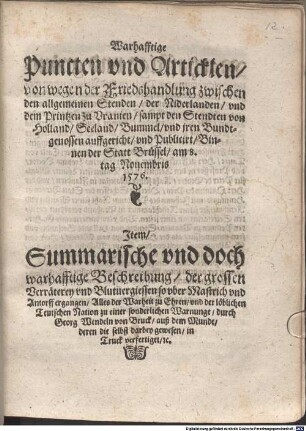 12.
Warhafftige
Puncten vnd Artickten/
von wegen der Friedshandlung zwischen
den allgemeinen Stenden/ der Niderlanden/ vnd
dem Printzen zu Vranien/ sampt den Stendten von
Holland/ Seeland/ Bummel/ vnd jren Bundt-
genossen auffgericht/ vnd Publicirt/ Bin-
nen der Statt Brüssel/ am 8.
tag Nouembris
1576.
Item/
Summarische vnd doch
warhafftige Beschreibung/ der grossen
Verräterey vnd Blutuergiessen so vber Mastrich vnd
Antorff ergangen/ Alles der Warheit zu Ehren/ vnd der löblichen
Teutschen Nation zu einer sonderlichen Warnunge/ durch
Georg Wendeln von Bruck/ auß dem Mundt/
deren die selbst darbey gewesen/ in
Truck verfertiget/ꝛc.